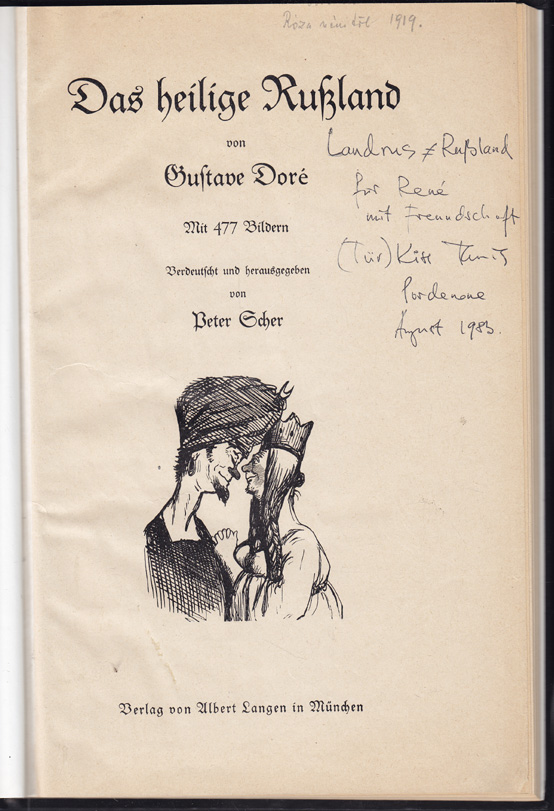 1919.
Das heilige Rußland
von
Gustave Doré
Mit 477 Bildern
Verdeutscht und herausgegeben
von
Peter Scher
Landrus ≠ Rußland
for René
mit Freundschaft
Kiss
Pordenone
August 1983.
Verlag von Albert Langen in München